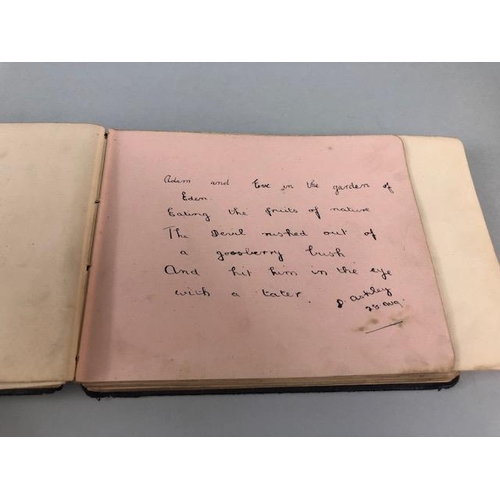 Adam and Eve in the garden of
Eden
Eating the fruits of nature
The Devil rushed out of
a goosberry bush
And hit him in the eye
with a tater.
Ashley
Aug.